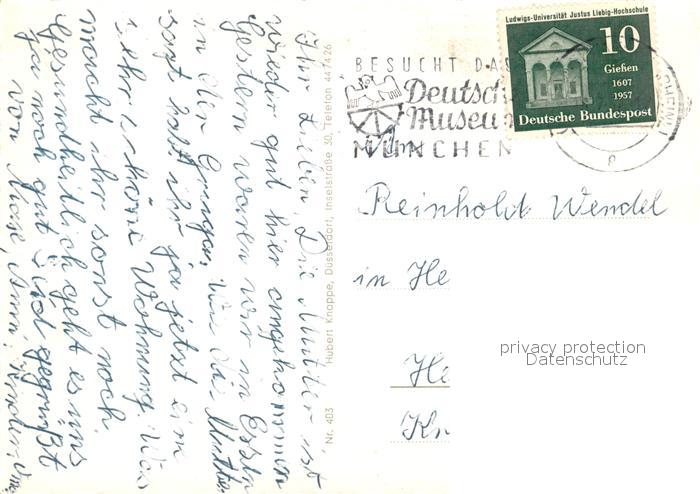 Ihr Lieben, Die Mutter ist
wieder gut hier angekommen
Gestern waren wir in Essen
in der Gruga, Wie die Mutter
sagt habt ihr ja jetzt eine
sehr schöne Wohnung. Was
macht ihr sonst noch.
Gesundheitlich geht es uns
ja noch gut. Seid gegrüßt
von Max, Anni, Kinder, Uma
Nr. 403 Hubert Knappe, Düsseldorf, Inselstraße 30, Telefon 447426
BESUCHT DAS
Deutsche
Museum
MÜNCHEN
Ludwigs-Universität Justus Liebig-Hochschule
10
Gießen
1607
1957
Deutsche Bundespost
Reinholt Wendel
in He
He
Kr
privacy protection
Datenschutz